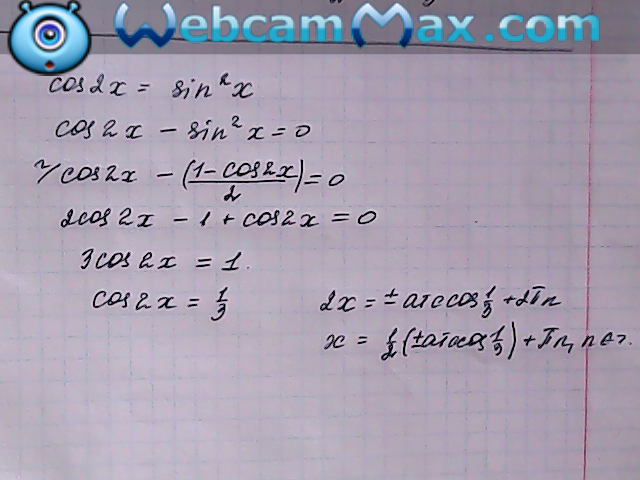 WebcamMax.com
cos2x = sin²x
cos2x - sin²x = 0
2/ cos2x - (1 - cos2x)/2 = 0
2cos2x - 1 + cos2x = 0
3cos2x = 1.
cos2x = 1/3
2x = ± arccos 1/3 + 2πn
x = 1/2 (± arccos 1/3) + πn, n ∈ z.